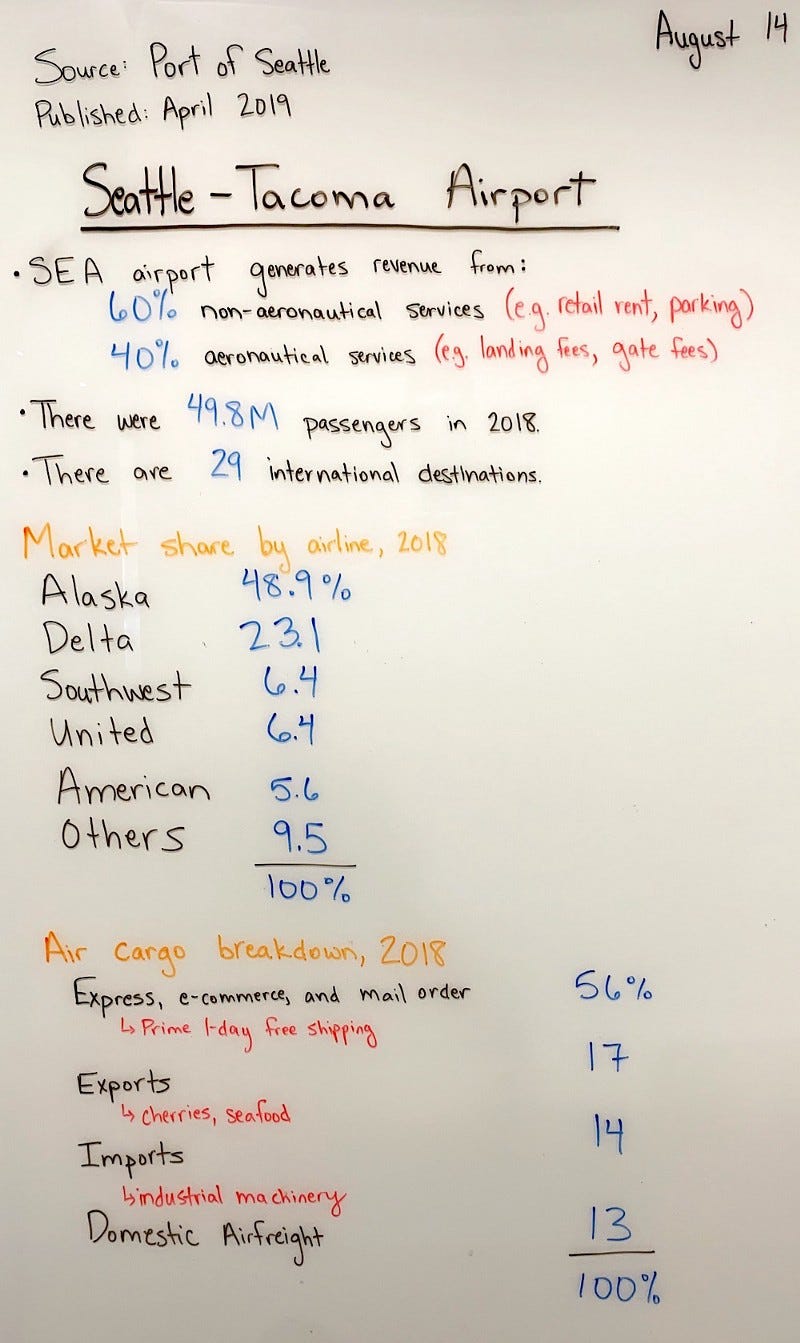 August 14
Source: Port of Seattle
Published: April 2019
Seattle - Tacoma Airport
• SEA airport generates revenue from:
60% non-aeronautical services (e.g. retail rent, parking)
40% aeronautical services (e.g. landing fees, gate fees)
• There were 49.8M passengers in 2018.
• There are 29 international destinations.
Market share by airline, 2018
Alaska 48.9%
Delta 23.1
Southwest 6.4
United 6.4
American 5.6
Others 9.5
100%
Air cargo breakdown, 2018
Express, e-commerce, and mail order 56%
↳ Prime 1-day free shipping
Exports 17
↳ cherries, seafood
Imports 14
↳ industrial machinery
Domestic Airfreight 13
100%